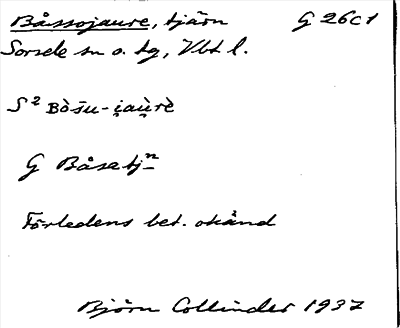 Båssojaure, tjärn G 26c1
Sorsele sn o. tg, Vbt l.
S² Bȯ̀s̄u-i̯au̯rè
G Båsetjⁿ
Förledens bet. okänd
Björn Collinder 1937